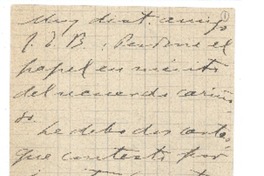 Muy dist. amigo
J. E. B.: Perdone el
papel en mérito
del recuerdo cariño
so.
Le debo dos cartas,
que contesto por